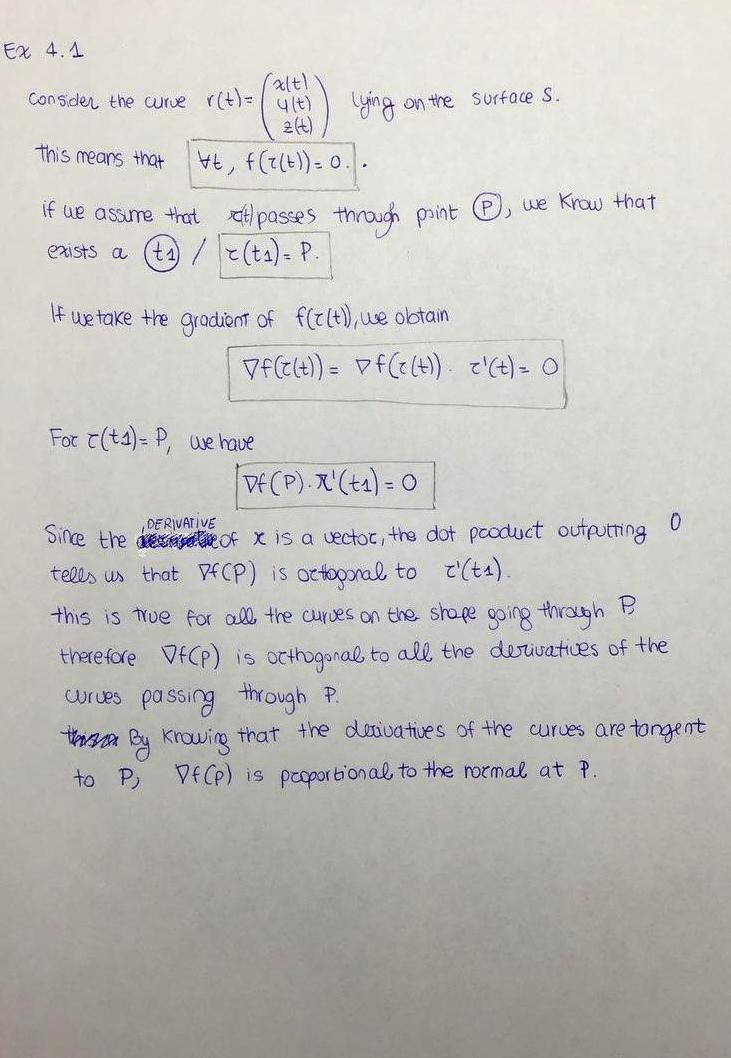 Ex 4.1
Consider the curve r(t)= (x(t) y(t) z(t)) lying on the surface S.
This means that ∀t, f(r(t))=0. .
if we assume that r(t) passes through point P, we know that
exists a t1 / r(t1)= P.
If we take the gradient of f(r(t)), we obtain
∇f(r(t)) = ∇f(r(t)) . r'(t)= 0
For r(t1)= P, we have
∇f(P). r'(t1) = 0
Since the DERIVATIVE of r is a vector, the dot product outputting 0
tells us that ∇f(P) is ortogonal to r'(t1).
this is true for all the curves on the shape going through P
therefore ∇f(p) is orthogonal to all the derivatives of the
curves passing through P.
By knowing that the derivatives of the curves are tangent
to P, ∇f(p) is proportional to the normal at P.